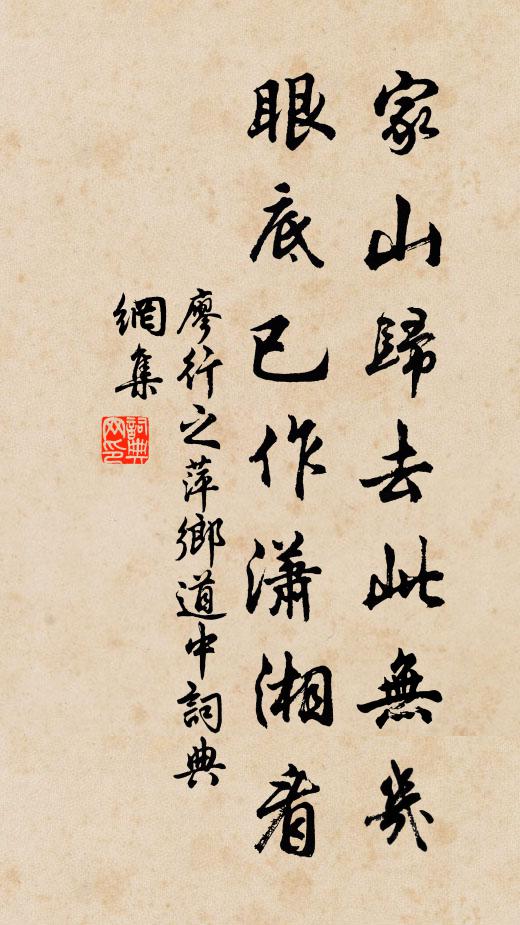 家山歸去此無幾
眼底已作瀟湘看
廖行之萍鄉道中詞典
網集
詞典網印